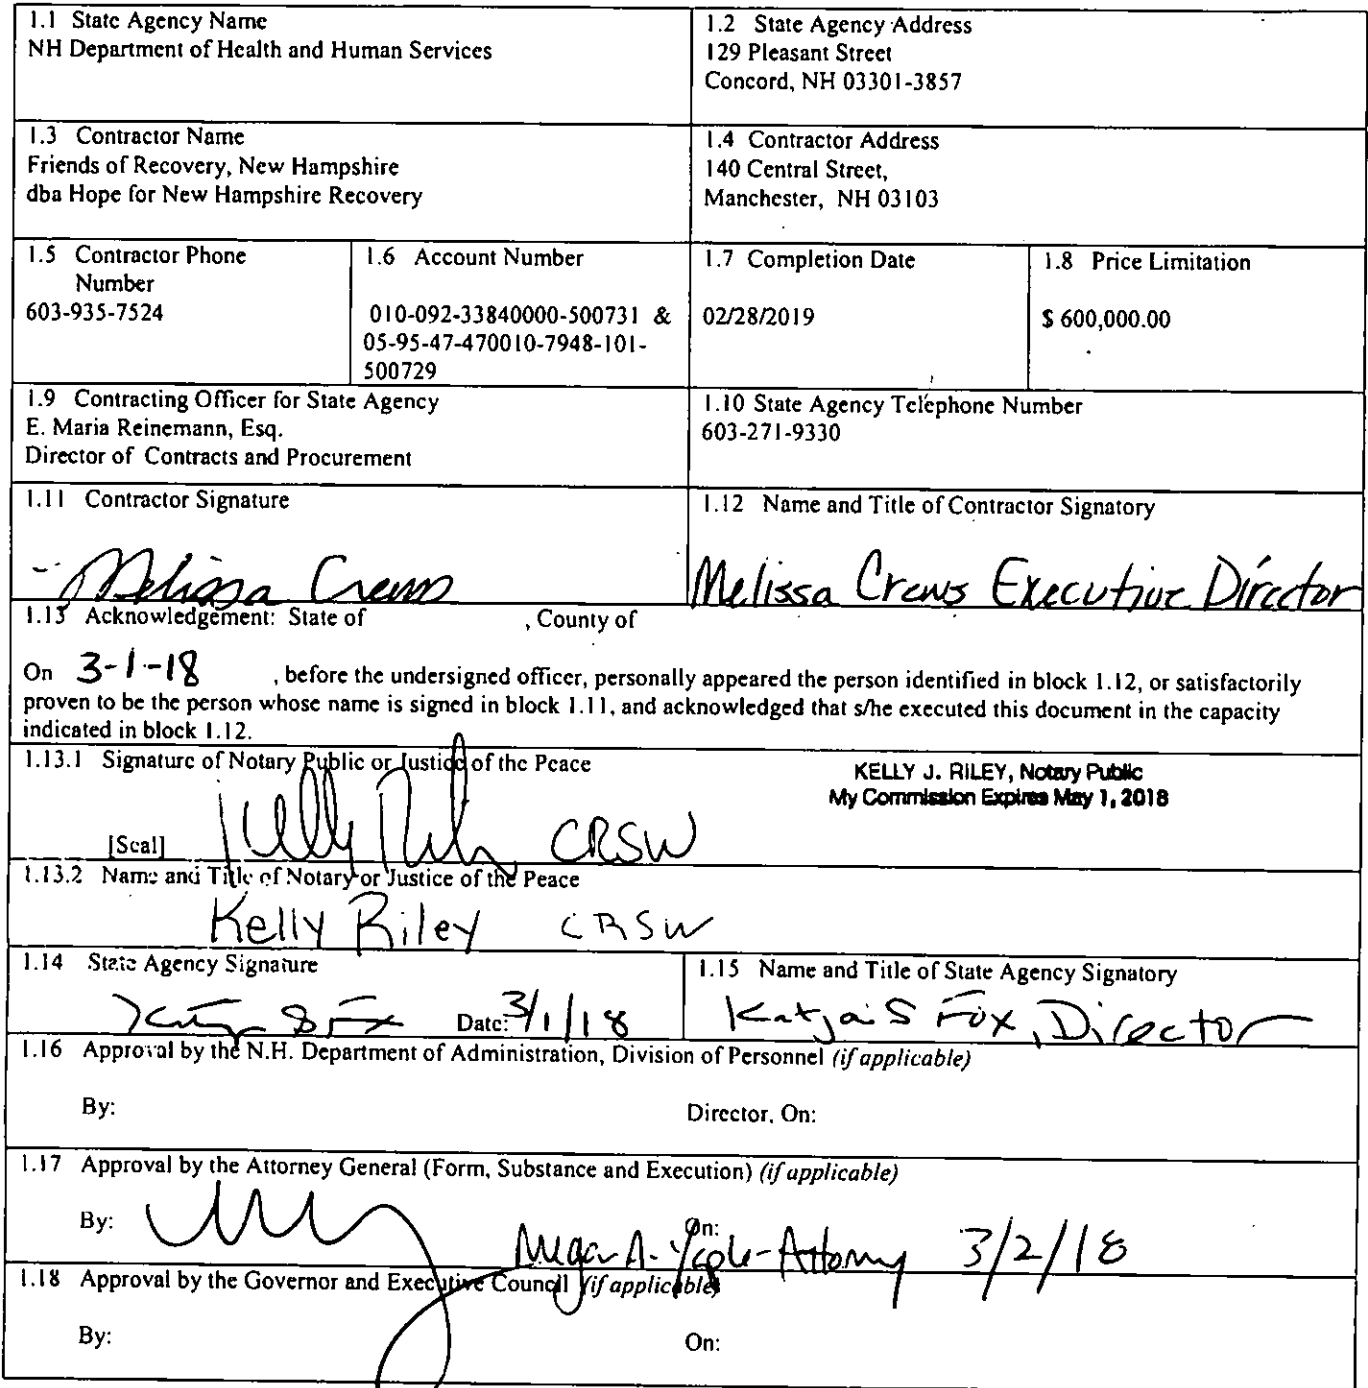 1.1 State Agency Name
NH Department of Health and Human Services
1.2 State Agency Address
129 Pleasant Street
Concord, NH 03301-3857
1.3 Contractor Name
Friends of Recovery, New Hampshire
dba Hope for New Hampshire Recovery
1.4 Contractor Address
140 Central Street,
Manchester, NH 03103
1.5 Contractor Phone
Number
603-935-7524
1.6 Account Number
010-092-33840000-500731 &
05-95-47-470010-7948-101-
500729
1.7 Completion Date
02/28/2019
1.8 Price Limitation
$ 600,000.00
1.9 Contracting Officer for State Agency
E. Maria Reinemann, Esq.
Director of Contracts and Procurement
1.10 State Agency Telephone Number
603-271-9330
1.11 Contractor Signature
Melissa Crews
1.12 Name and Title of Contractor Signatory
Melissa Crews Executive Director
1.13 Acknowledgement: State of , County of
On 3-1-18 , before the undersigned officer, personally appeared the person identified in block 1.12, or satisfactorily
proven to be the person whose name is signed in block 1.11, and acknowledged that s/he executed this document in the capacity
indicated in block 1.12.
1.13.1 Signature of Notary Public or Justice of the Peace
KELLY J. RILEY, Notary Public
My Commission Expires May 1, 2018
[Seal] Kelly CRSW
1.13.2 Name and Title of Notary or Justice of the Peace
Kelly Riley CRSW
1.14 State Agency Signature
Date: 3/1/18
1.15 Name and Title of State Agency Signatory
Katja S Fox, Director
1.16 Approval by the N.H. Department of Administration, Division of Personnel (if applicable)
By: Director, On:
1.17 Approval by the Attorney General (Form, Substance and Execution) (if applicable)
By: On:
Megan A. Attorney 3/2/18
1.18 Approval by the Governor and Executive Council (if applicable)
By: On: